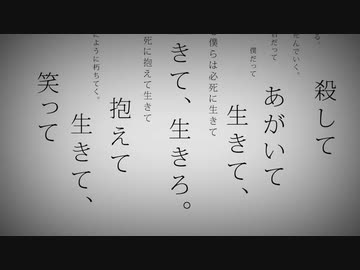 る。
殺して
死んでいく。
だって
あがいて
僕だって
生きて、
僕らは必死に生きて
きて、生きろ。
死に抱えて生きて
抱えて
にように朽ちてく。
生きて、
笑って